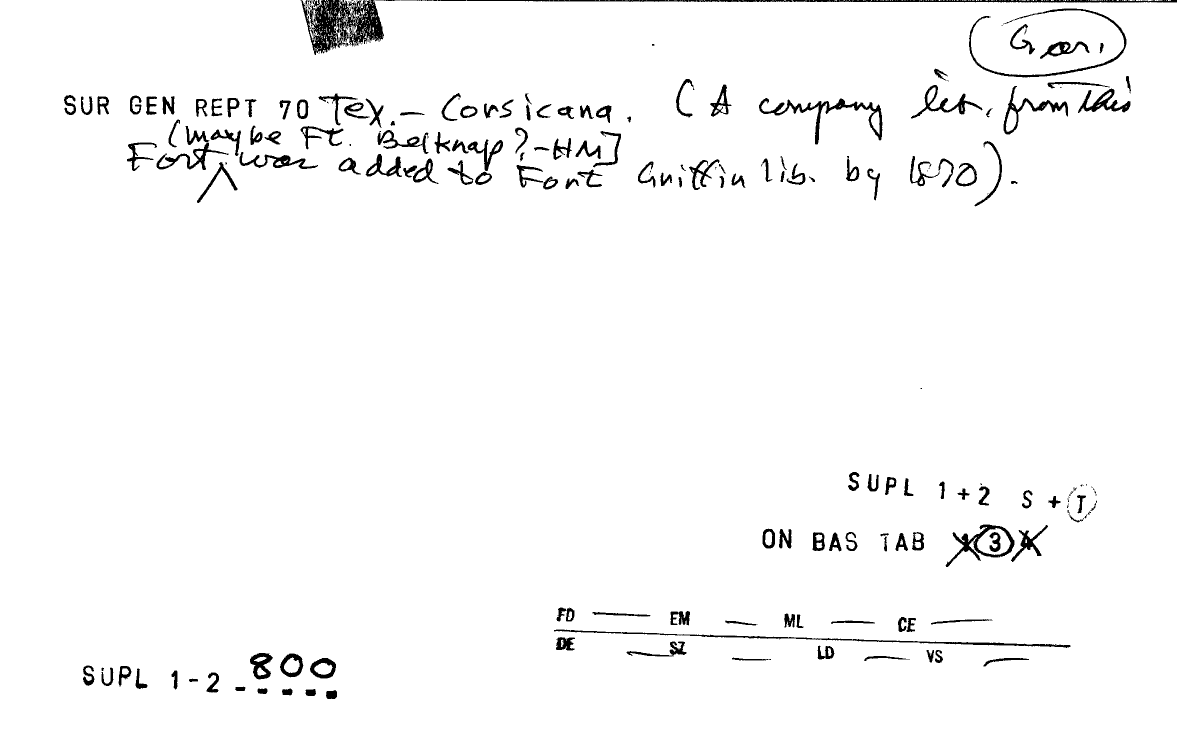 Gar.
SUR GEN REPT 70 Tex. – Corsicana. (A company lib. from this
(maybe Ft. Belknap? – HM]
Fort ^ was added to Fort Griffin lib. by 1870).
SUPL 1+2 S + T
ON BAS TAB 1 3 4
FD EM ML CE
DE SZ LD VS
SUPL 1-2 800